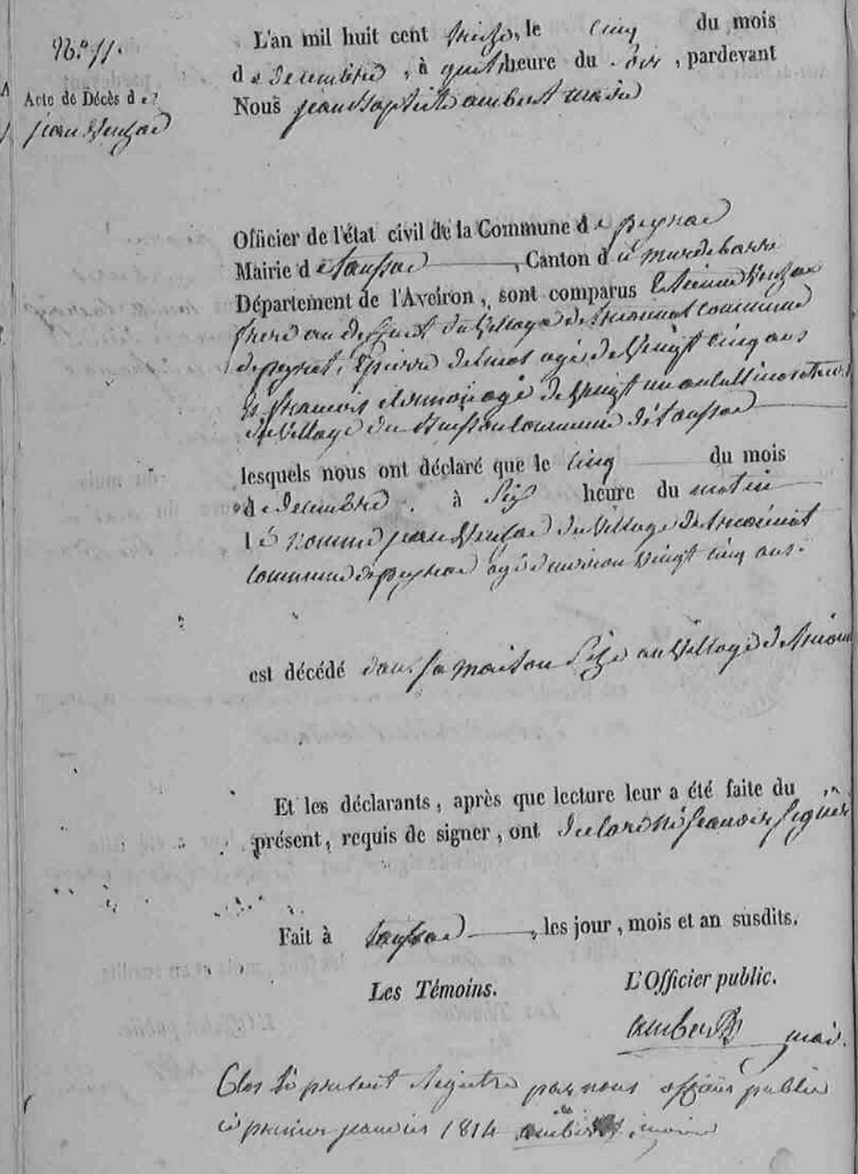 N.º 11.
Acte de Décès de
jean Veuzac
L'an mil huit cent treize, le cinq du mois
de decembre, à quatre heure du soir, pardevant
Nous jean Baptiste aubert maire
Officier de l'état civil de la Commune de peyrac
Mairie de taussac, Canton de murdebarrez
Département de l'Aveiron, sont comparus Etienne
frere au deffunt du village de commune
de peyrat, pierre agé de vingt cinq ans
et francois agé de vingt un ans
du village du Buisson commune de taussac
lesquels nous ont déclaré que le cinq du mois
de decembre à six heure du matin
le nommé jean du village de
commune de peyrac agé d'environ vingt cinq ans.
est décédé dans sa maison size au village de
Et les déclarants, après que lecture leur a été faite du
présent, requis de signer, ont declaré ne scavoir signer
Fait à taussac, les jour, mois et an susdits.
Les Témoins.
L'Officier public.
maire
Clos le present Registre par nous officier public
ce premier janvier 1814 maire